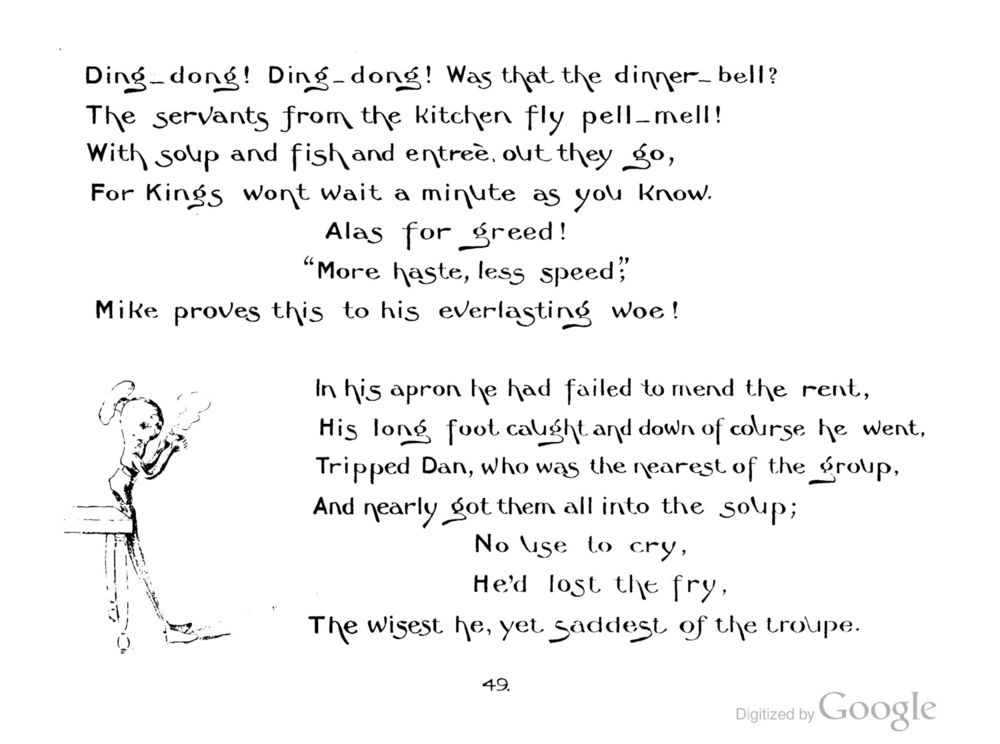 Ding-dong! Ding-dong! Was that the dinner-bell?
The servants from the kitchen fly pell-mell!
With soup and fish and entreè, out they go,
For Kings wont wait a minute as you know.
Alas for greed!
“More haste, less speed”;
Mike proves this to his everlasting woe!
In his apron he had failed to mend the rent,
His long foot caught and down of course he went,
Tripped Dan, who was the nearest of the group,
And nearly got them all into the soup;
No use to cry,
He'd lost the fry,
The wisest he, yet saddest of the troupe.
49.
Digitized by Google